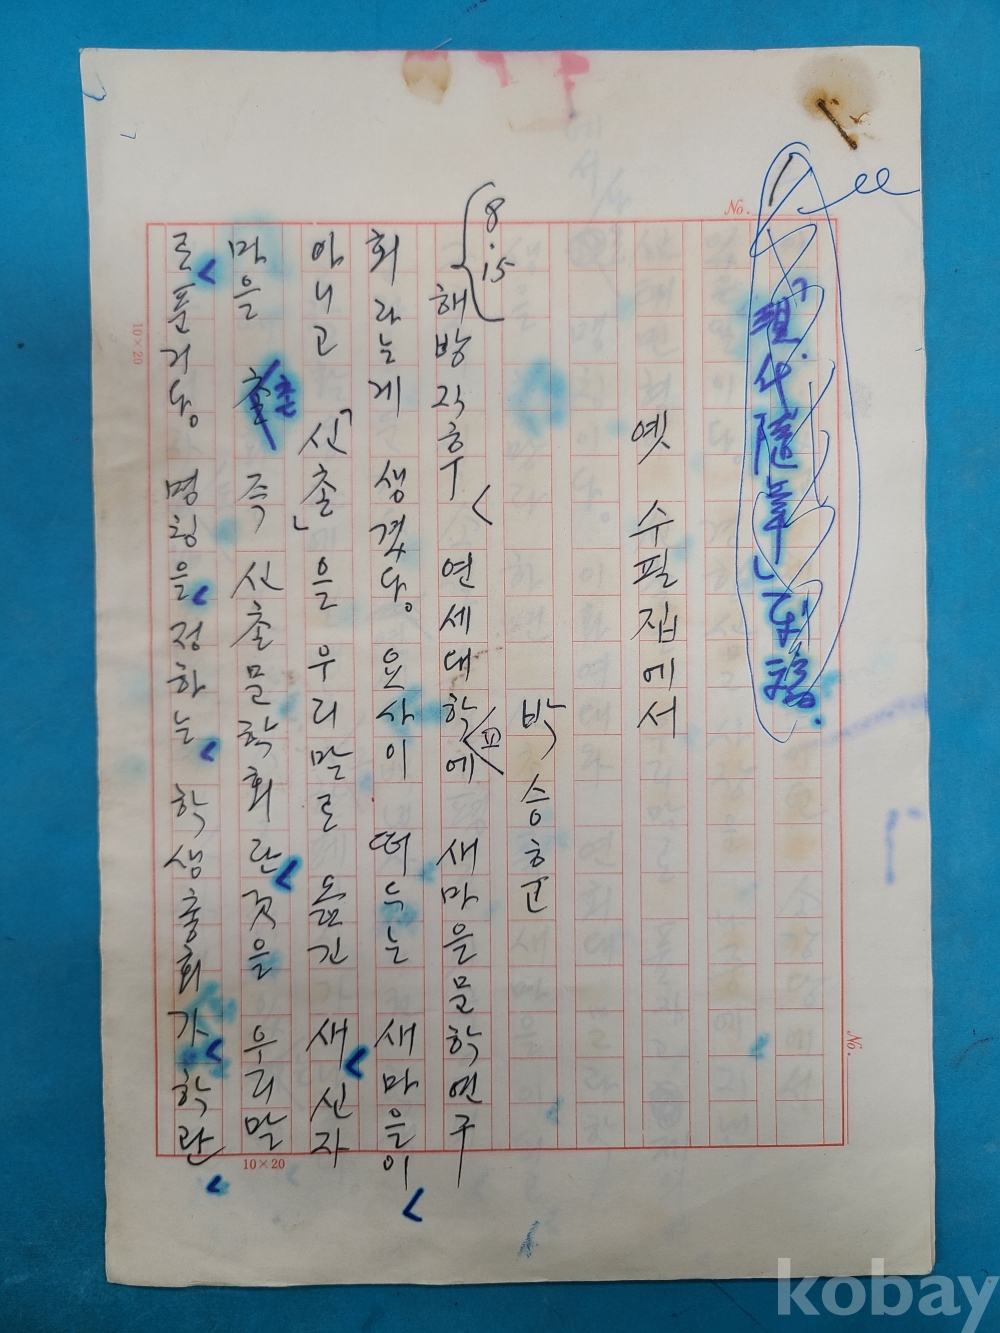 No.
「現代隨筆」原稿.
옛 수필집에서
박승훈
8.15
해방직후 연세대학교에 새마을문학연구
회라는게 생겼다. 요사이 떠드는 새마을이
아니고 「신촌」을 우리말로 옮긴 새 신자
마을 촌 즉 신촌문학회란것을 우리말
로푼거다. 명칭을 정하는 학생총회가 학관
No.
10×20
10×20
kobay